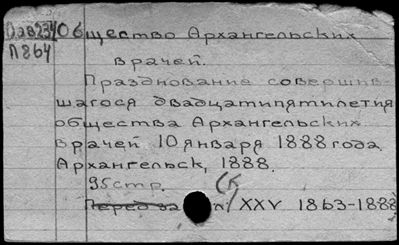 Общество Архангельских
врачей.
Празднование совершив-
шагося двадцатипятилетия
общества Архангельских
врачей 10 января 1888 года.
Архангельск, 1888.
95 стр.
XXV 1863-1888